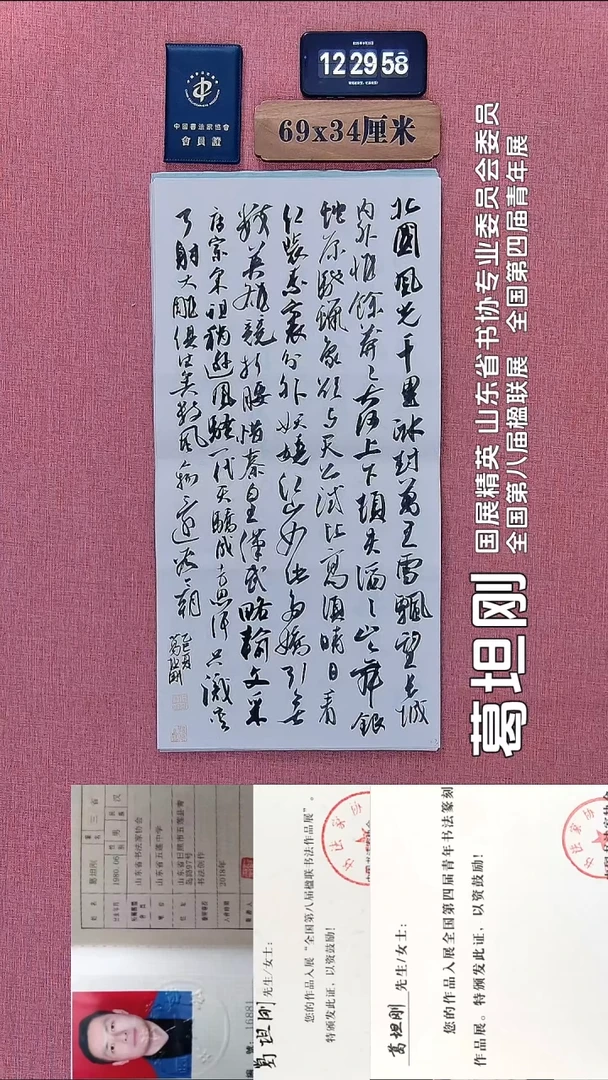 中國書法家協會
會員證
12 29 58
69x34厘米
北國風光千里冰封萬里雪飄望長城
内外惟餘莽々大河上下頓失滔々山舞銀
蛇原馳蠟象欲与天公試比高須晴日看
红装素裹分外妖嬈江山如此多嬌引無
数英雄競折腰惜秦皇漢武略輸文采
唐宗宋祖稍遜風騷一代天驕成吉思汗只識彎
弓射大雕俱往矣数風流人物還看今朝
葛坦刚
葛坦刚
国展精英 山东省书协专业委员会委员
全国第八届楹联展 全国第四届青年展
葛坦刚
男
汉
1980.06
山东省书法家协会
山东省五莲中学
山东省日照市五莲县青
岛路97号
书法创作
2018年
16881
葛坦刚 先生/女士：
您的作品入展“全国第八届楹联书法作品展”。
特颁发此证，以资鼓励！
葛坦刚 先生/女士：
您的作品入展全国第四届青年书法篆刻
作品展。特颁发此证，以资鼓励！